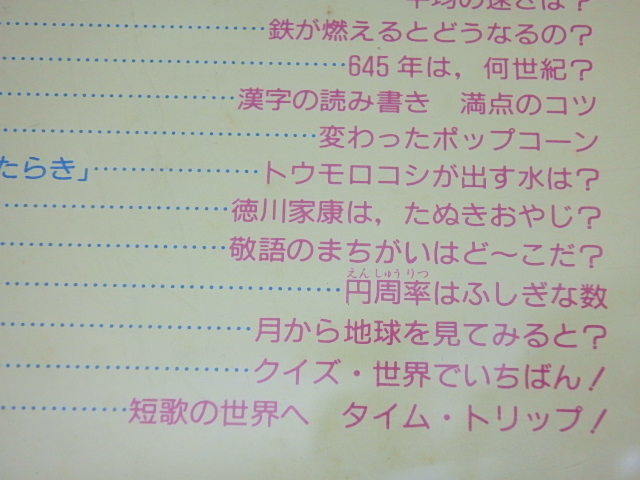 平均の速さは?
鉄が燃えるとどうなるの?
645年は，何世紀?
漢字の読み書き　満点のコツ
変わったポップコーン
たらき」 トウモロコシが出す水は?
徳川家康は，たぬきおやじ?
敬語のまちがいはど〜こだ?
円周率はふしぎな数
えんしゅうりつ
月から地球を見てみると?
クイズ・世界でいちばん!
短歌の世界へ　タイム・トリップ!